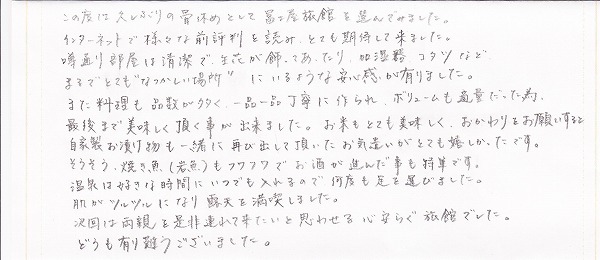 この度は久しぶりの骨休めとして冨士屋旅館を選んでみました。
インターネットで様々な前評判を読み、とても期待して来ました。
噂通り部屋は清潔で、生花が飾ってあったり、加湿器 コタツなど
まるでとても"なつかしい場所"にいるような安心感が有りました。
また料理も品数が多く、一品一品丁寧に作られ、ボリュームも適量だった為、
最後まで美味しく頂く事が出来ました。お米もとても美味しく、おかわりをお願いすると
自家製お漬け物も一緒に再び出して頂いたお気遣いがとても嬉しかったです。
そうそう、焼き魚(岩魚)もフワフワでお酒が進んだ事も特筆です。
温泉は好きな時間にいつでも入れるので何度も足を運びました。
肌がツルツルになり露天を満喫しました。
次回は両親を是非連れて来たいと思わせる心安らぐ旅館でした。
どうも有り難うございました。